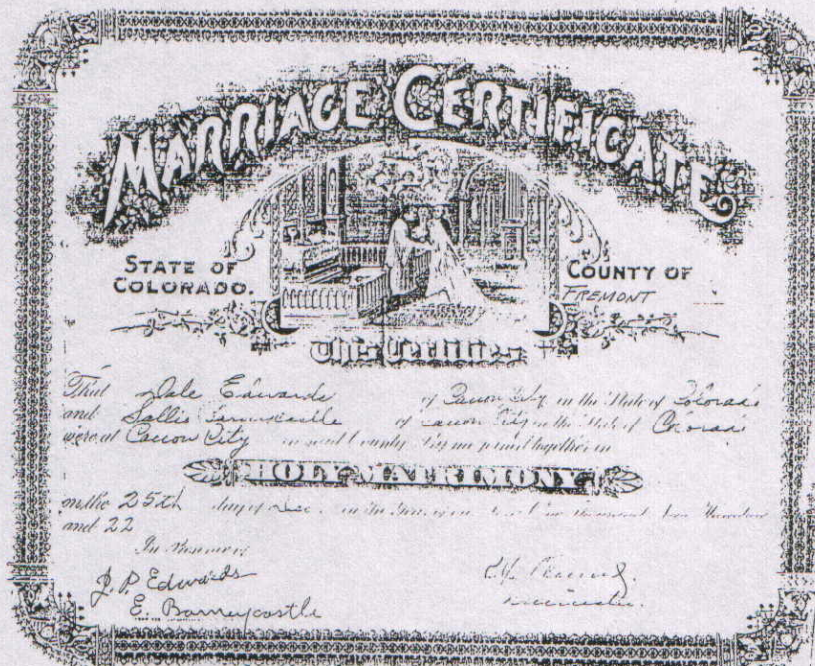 MARRIAGE CERTIFICATE
STATE OF
COLORADO.
COUNTY OF
FREMONT
This Certifies
That Dale Edwards of Canon City in the State of Colorado
and Sallie of Canon City in the State of Colorado
were at Canon City in said County by me joined together in
HOLY MATRIMONY
on the 25th day of in the Year of our Lord one thousand Hundred
and 22
In Presence of
J. P. Edwards
E. Barneycastle